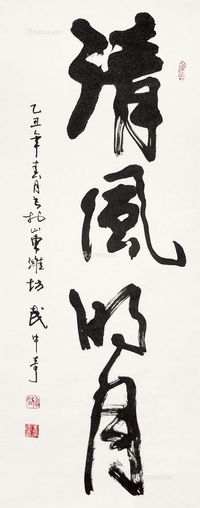 清風明月
乙丑年春月於山東濰坊 武中奇